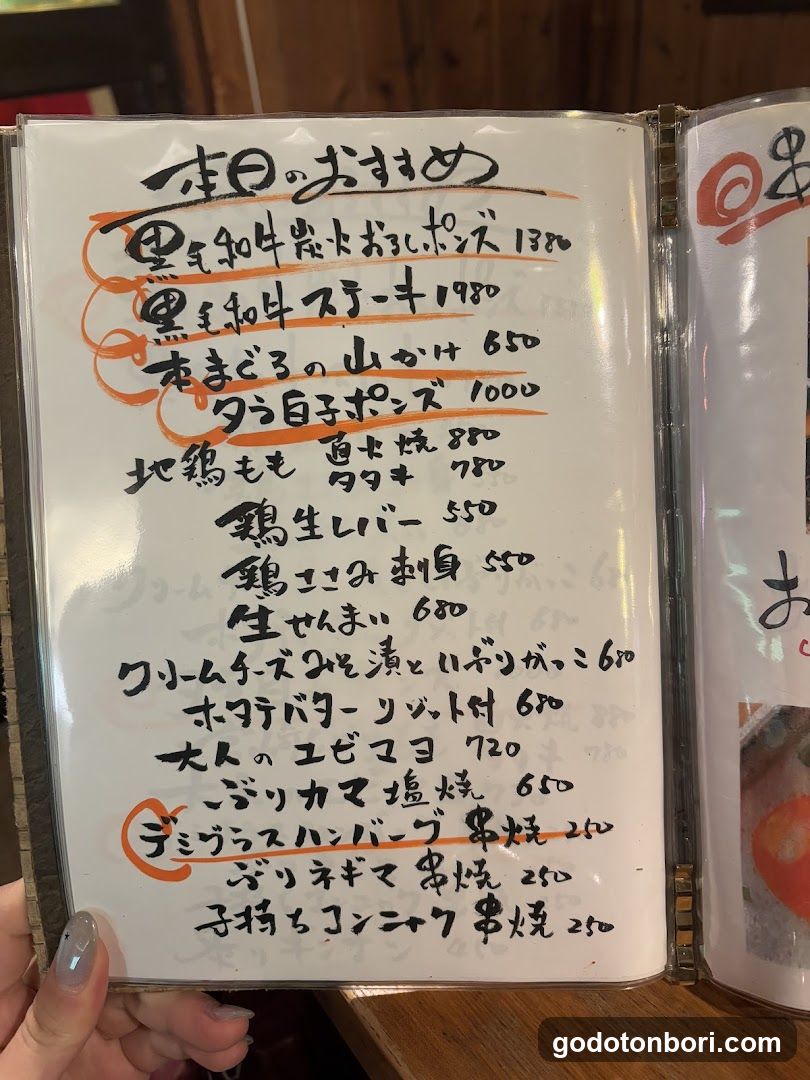 本日のおすすめ
黒毛和牛炭火おろしポンズ 1380
黒毛和牛ステーキ 1980
本まぐろの山かけ 650
タラ白子ポンズ 1000
地鶏もも 直火焼 880
タタキ 780
鶏生レバー 550
鶏ささみ刺身 550
生せんまい 680
クリームチーズみそ漬といぶりがっこ 680
ホタテバターリゾット付 680
大人のエビマヨ 720
ぶりカマ塩焼 650
デミグラスハンバーグ串焼 250
ぶりネギマ串焼 250
子持ちコンニャク串焼 250
godotonbori.com